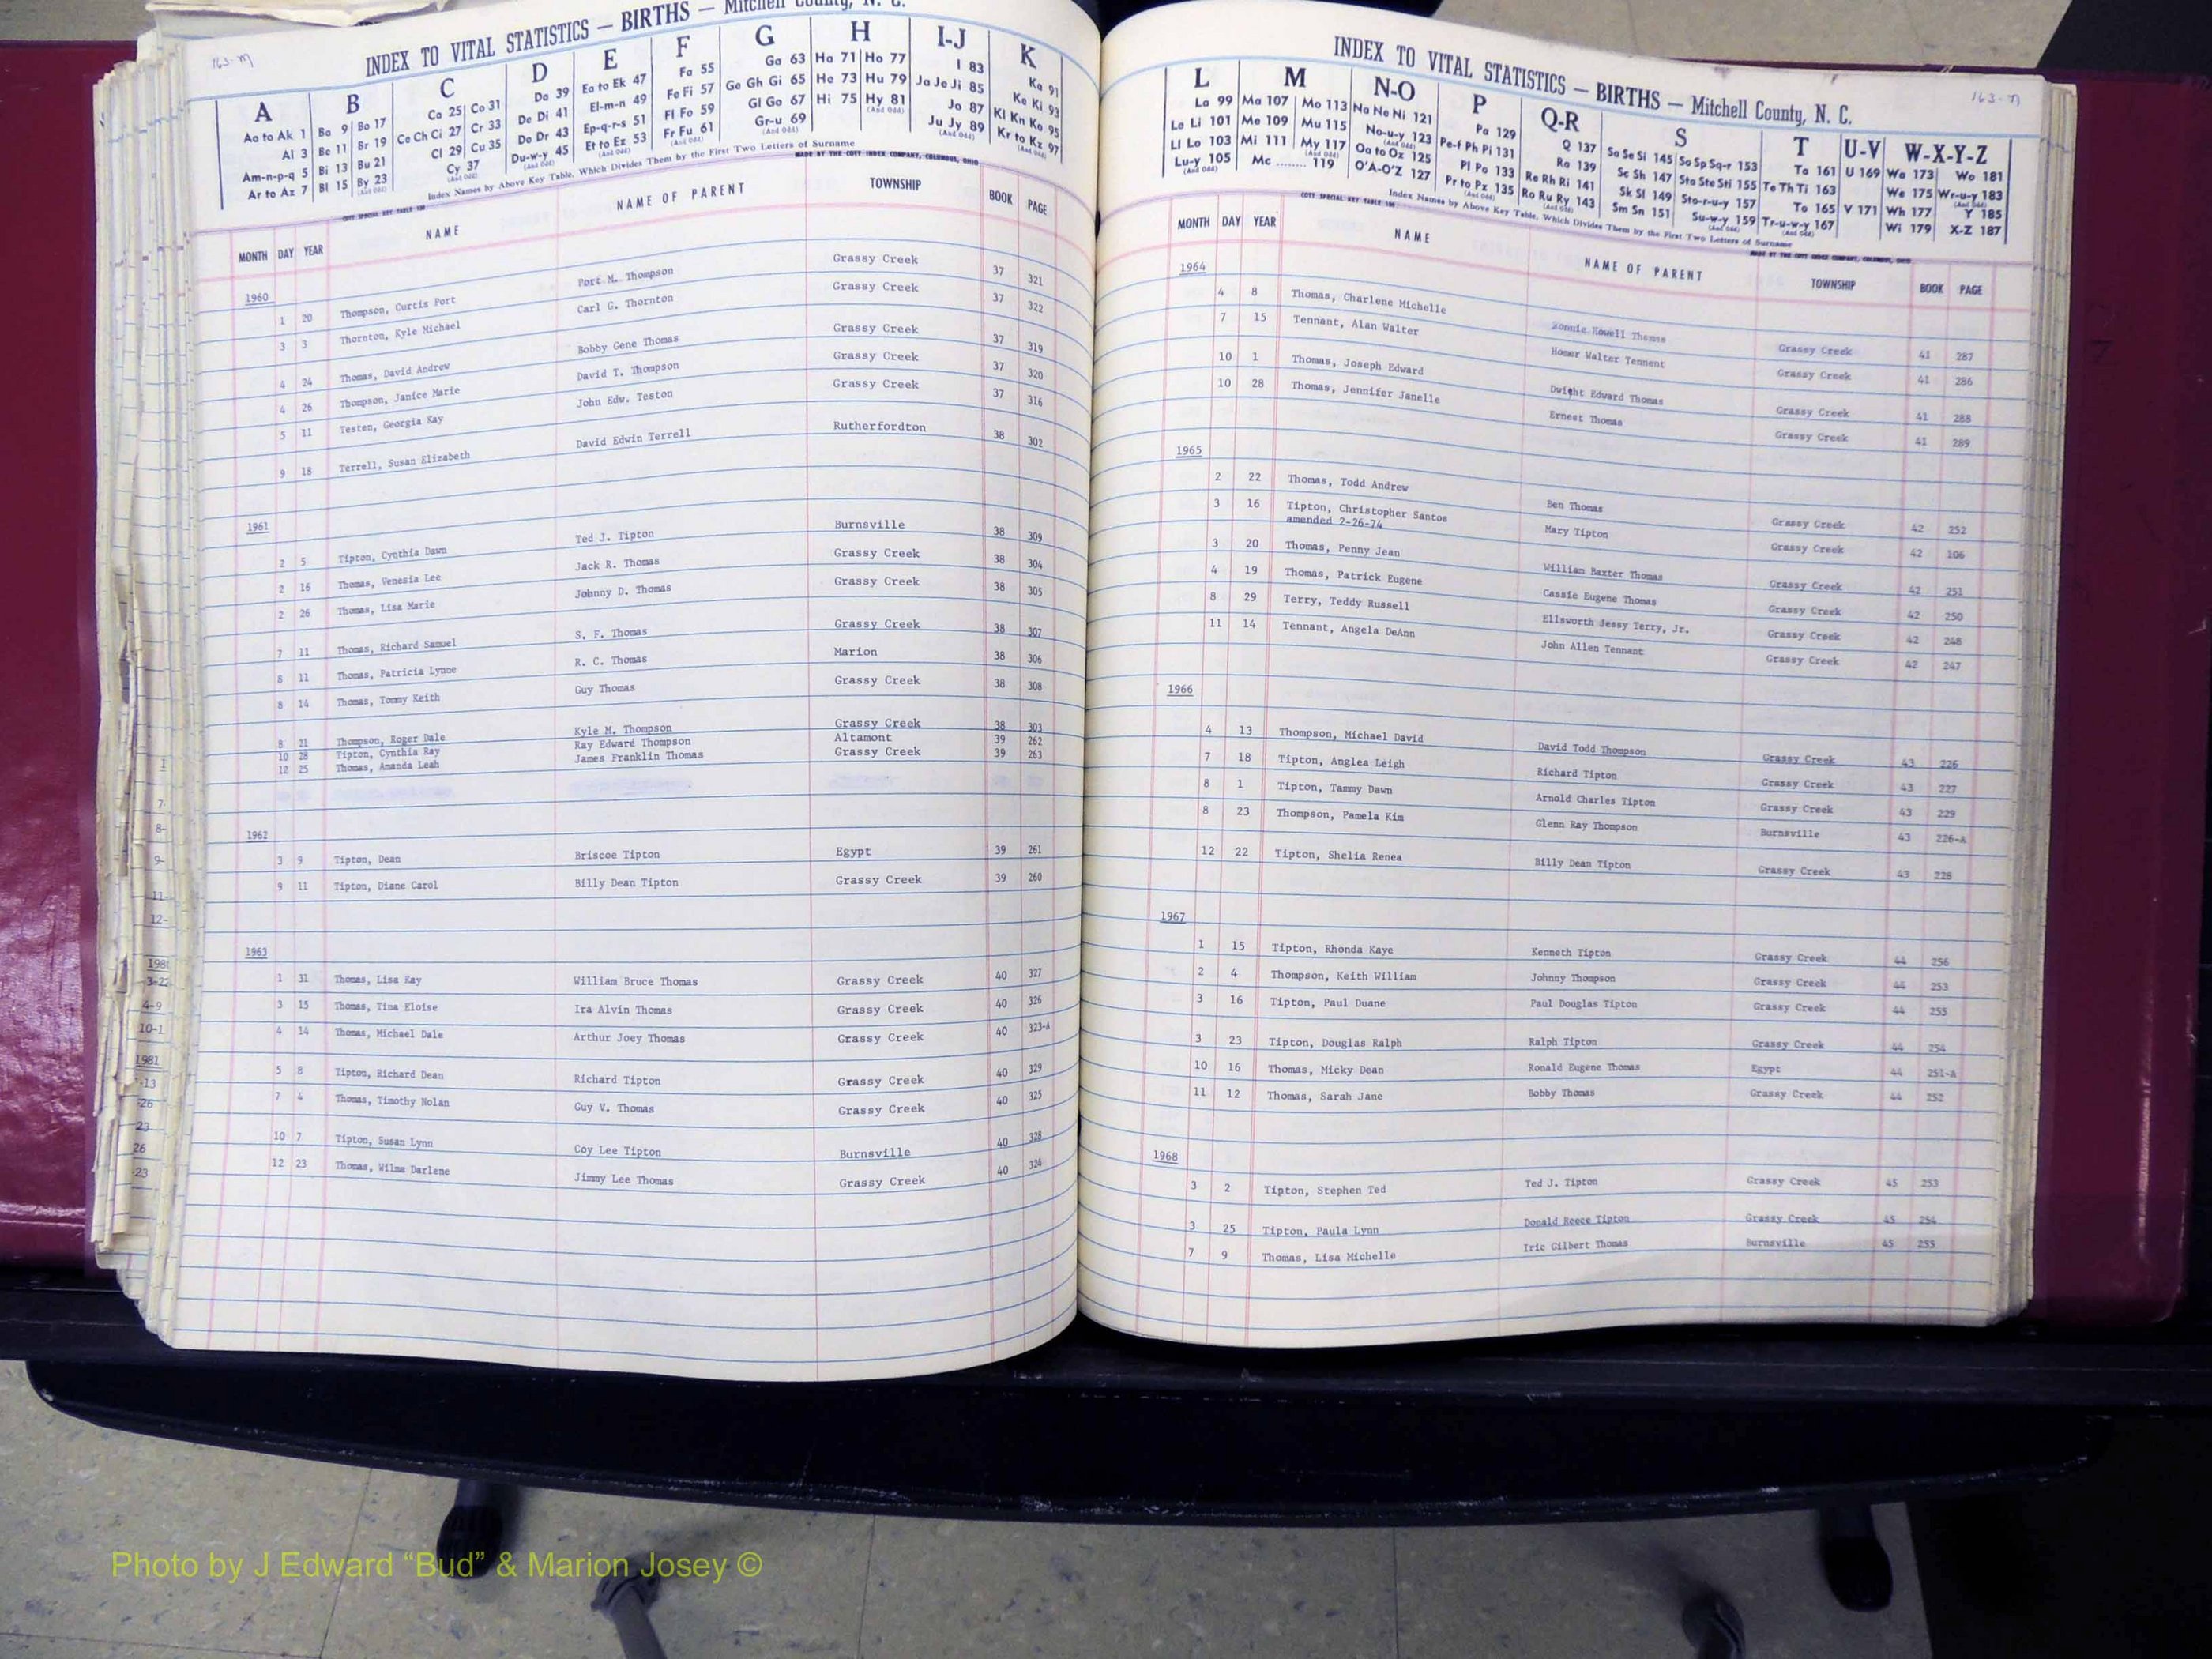 163-M
INDEX TO VITAL STATISTICS — BIRTHS — Mitchell County, N. C.
A B C D E F G H I-J K
Aa to Ak 1 Ba 9 Bo 17 Ca 25 Co 31 Da 39 Ea to Ek 47 Fa 55 Ga 63 Ha 71 Ho 77 I 83 Ka 91
Al 3 Be 11 Br 19 Ce Ch Ci 27 Cr 33 De Di 41 El-m-n 49 Fe Fi 57 Ge Gh Gi 65 He 73 Hu 79 Ja Je Ji 85 Ke Ki 93
Am-n-p-q 5 Bi 13 Bu 21 Cl 29 Cu 35 Do Dr 43 Ep-q-r-s 51 Fl Fo 59 Gl Go 67 Hi 75 Hy 81 Jo 87 Kl Kn Ko 95
Ar to Az 7 Bl 15 By 23 Cy 37 Du-w-y 45 Et to Ez 53 Fr Fu 61 Gr-u 69 Ju Jy 89 Kr to Kz 97
Index Names by Above Key Table, Which Divides Them by the First Two Letters of Surname
MADE BY THE COTT INDEX COMPANY, COLUMBUS, OHIO
MONTH DAY YEAR NAME NAME OF PARENT TOWNSHIP BOOK PAGE
1960
1 20 Thompson, Curtis Port Port M. Thompson Grassy Creek 37 321
3 3 Thornton, Kyle Michael Carl G. Thornton Grassy Creek 37 322
4 24 Thomas, David Andrew Bobby Gene Thomas Grassy Creek 37 319
4 26 Thompson, Janice Marie David T. Thompson Grassy Creek 37 320
5 11 Testen, Georgia Kay John Edw. Teston Grassy Creek 37 316
9 18 Terrell, Susan Elizabeth David Edwin Terrell Rutherfordton 38 302
1961
2 5 Tipton, Cynthia Dawn Ted J. Tipton Burnsville 38 309
2 16 Thomas, Venesia Lee Jack R. Thomas Grassy Creek 38 304
2 26 Thomas, Lisa Marie Johnny D. Thomas Grassy Creek 38 305
7 11 Thomas, Richard Samuel S. F. Thomas Grassy Creek 38 307
8 11 Thomas, Patricia Lynne R. C. Thomas Marion 38 306
8 14 Thomas, Tommy Keith Guy Thomas Grassy Creek 38 308
8 21 Thompson, Roger Dale Kyle M. Thompson Grassy Creek 38 303
10 28 Tipton, Cynthia Ray Ray Edward Thompson Altamont 39 262
12 25 Thomas, Amanda Leah James Franklin Thomas Grassy Creek 39 263
1962
3 9 Tipton, Dean Briscoe Tipton Egypt 39 261
9 11 Tipton, Diane Carol Billy Dean Tipton Grassy Creek 39 260
1963
1 31 Thomas, Lisa Kay William Bruce Thomas Grassy Creek 40 327
3 15 Thomas, Tina Eloise Ira Alvin Thomas Grassy Creek 40 326
4 14 Thomas, Michael Dale Arthur Joey Thomas Grassy Creek 40 323-A
5 8 Tipton, Richard Dean Richard Tipton Grassy Creek 40 329
7 4 Thomas, Timothy Nolan Guy V. Thomas Grassy Creek 40 325
10 7 Tipton, Susan Lynn Coy Lee Tipton Burnsville 40 328
12 23 Thomas, Wilma Darlene Jimmy Lee Thomas Grassy Creek 40 324
163-M
INDEX TO VITAL STATISTICS — BIRTHS — Mitchell County, N. C.
L M N-O P Q-R S T U-V W-X-Y-Z
La 99 Ma 107 Mo 113 Na Ne Ni 121 Pa 129 Q 137 Sa Se Si 145 So Sp Sq-r 153 Ta 161 U 169 Wa 173 Wo 181
Le Li 101 Me 109 Mu 115 No-u-y 123 Pe-f Ph Pi 131 Ra 139 Sc Sh 147 Sta Ste Sti 155 Te Th Ti 163 We 175 Wr-u-y 183
Ll Lo 103 Mi 111 My 117 Oa to Oz 125 Pl Po 133 Re Rh Ri 141 Sk Sl 149 Sto-r-u-y 157 To 165 V 171 Wh 177 Y 185
Lu-y 105 Mc ........ 119 O'A-O'Z 127 Pr to Pz 135 Ro Ru Ry 143 Sm Sn 151 Su-w-y 159 Tr-u-w-y 167 Wi 179 X-Z 187
Index Names by Above Key Table, Which Divides Them by the First Two Letters of Surname
MADE BY THE COTT INDEX COMPANY, COLUMBUS, OHIO
MONTH DAY YEAR NAME NAME OF PARENT TOWNSHIP BOOK PAGE
1964
4 8 Thomas, Charlene Michelle Thomas Grassy Creek 41 287
7 15 Tennant, Alan Walter Homer Walter Tennent Grassy Creek 41 286
10 1 Thomas, Joseph Edward Dwight Edward Thomas Grassy Creek 41 288
10 28 Thomas, Jennifer Janelle Ernest Thomas Grassy Creek 41 289
1965
2 22 Thomas, Todd Andrew Ben Thomas Grassy Creek 42 252
3 16 Tipton, Christopher Santos Mary Tipton Grassy Creek 42 106
amended 2-26-74
3 20 Thomas, Penny Jean William Baxter Thomas Grassy Creek 42 251
4 19 Thomas, Patrick Eugene Cassie Eugene Thomas Grassy Creek 42 250
8 29 Terry, Teddy Russell Ellsworth Jessy Terry, Jr. Grassy Creek 42 248
11 14 Tennant, Angela DeAnn John Allen Tennant Grassy Creek 42 247
1966
4 13 Thompson, Michael David David Todd Thompson Grassy Creek 43 226
7 18 Tipton, Anglea Leigh Richard Tipton Grassy Creek 43 227
8 1 Tipton, Tammy Dawn Arnold Charles Tipton Grassy Creek 43 229
8 23 Thompson, Pamela Kim Glenn Ray Thompson Burnsville 43 226-A
12 22 Tipton, Shelia Renea Billy Dean Tipton Grassy Creek 43 228
1967
1 15 Tipton, Rhonda Kaye Kenneth Tipton Grassy Creek 44 256
2 4 Thompson, Keith William Johnny Thompson Grassy Creek 44 253
3 16 Tipton, Paul Duane Paul Douglas Tipton Grassy Creek 44 255
3 23 Tipton, Douglas Ralph Ralph Tipton Grassy Creek 44 254
10 16 Thomas, Micky Dean Ronald Eugene Thomas Egypt 44 251-A
11 12 Thomas, Sarah Jane Bobby Thomas Grassy Creek 44 252
1968
3 2 Tipton, Stephen Ted Ted J. Tipton Grassy Creek 45 253
3 25 Tipton, Paula Lynn Donald Reece Tipton Grassy Creek 45 254
7 9 Thomas, Lisa Michelle Iric Gilbert Thomas Burnsville 45 255
Photo by J Edward “Bud” & Marion Josey ©